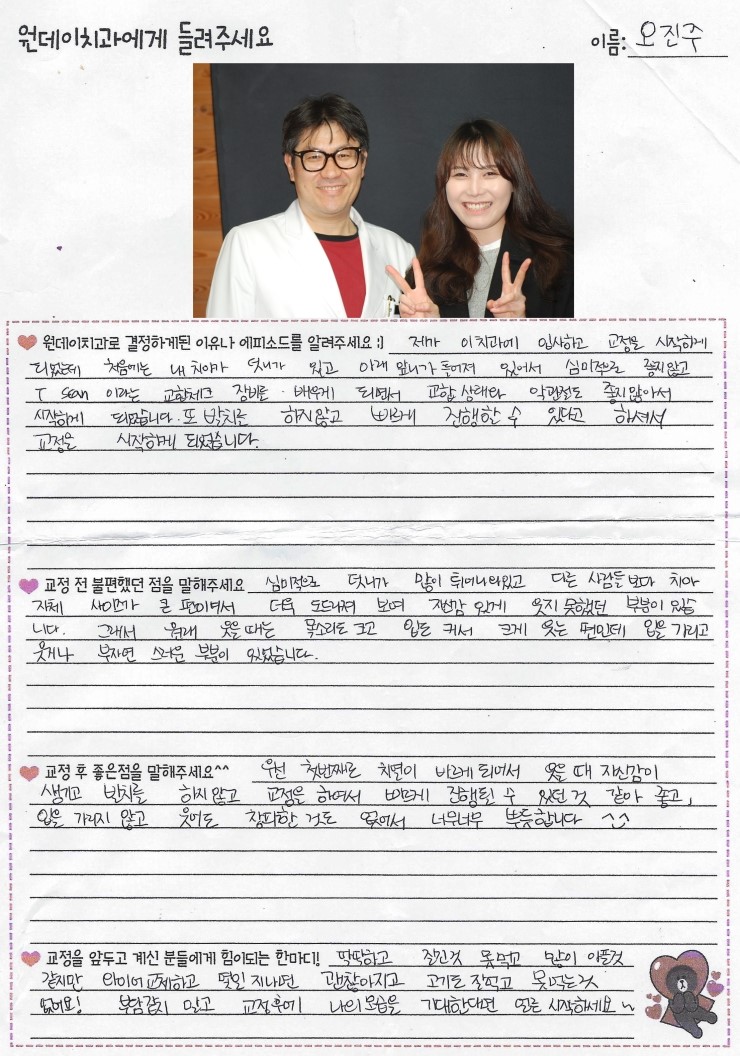 원데이치과에게 들려주세요
이름: 오진주
원데이치과로 결정하게된 이유나 에피소드를 알려주세요 :) 제가 이 치과에 입사하고 교정을 시작하게
되었는데 처음에는 내 치아가 덧니가 있고 아래 앞니가 틀어져 있어서 심미적으로 좋지않고
T scan 이라는 교합체크 장비를 배우게 되면서 교합 상태와 악관절도 좋지 않아서
시작하게 되었습니다. 또 발치를 하지않고 빠르게 진행할 수 있다고 하셔서
교정을 시작하게 되었습니다.
교정 전 불편했던 점을 말해주세요 심미적으로 덧니가 많이 튀어나와있고 다른 사람들보다 치아
자체 사이즈가 큰 편이여서 더욱 도드라져 보여 자신감 있게 웃지 못했던 부분이 있습
니다. 그래서 원래 웃을때는 목소리도 크고 입도 커서 크게 웃는 편인데 입을 가리고
웃거나 부자연 스러운 부분이 있었습니다.
교정 후 좋은점을 말해주세요^^ 우선 첫번째로 치열이 바르게 되어서 웃을 때 자신감이
생기고 발치를 하지않고 교정을 하여서 빠르게 진행될 수 있던 것 같아 좋고,
입을 가리지 않고 웃어도 창피한 것도 없어서 너무너무 뿌듯합니다 ^^
교정을 앞두고 계신 분들에게 힘이되는 한마디! 딱딱하고 질긴것 못먹고 많이 아플것
같지만 와이어 교체하고 몇일 지나면 괜찮아지고 고기도 잘먹고 못먹는것
없어요! 부담갖지 말고 교정후에 나의 모습을 기대한다면 얼른 시작하세요~